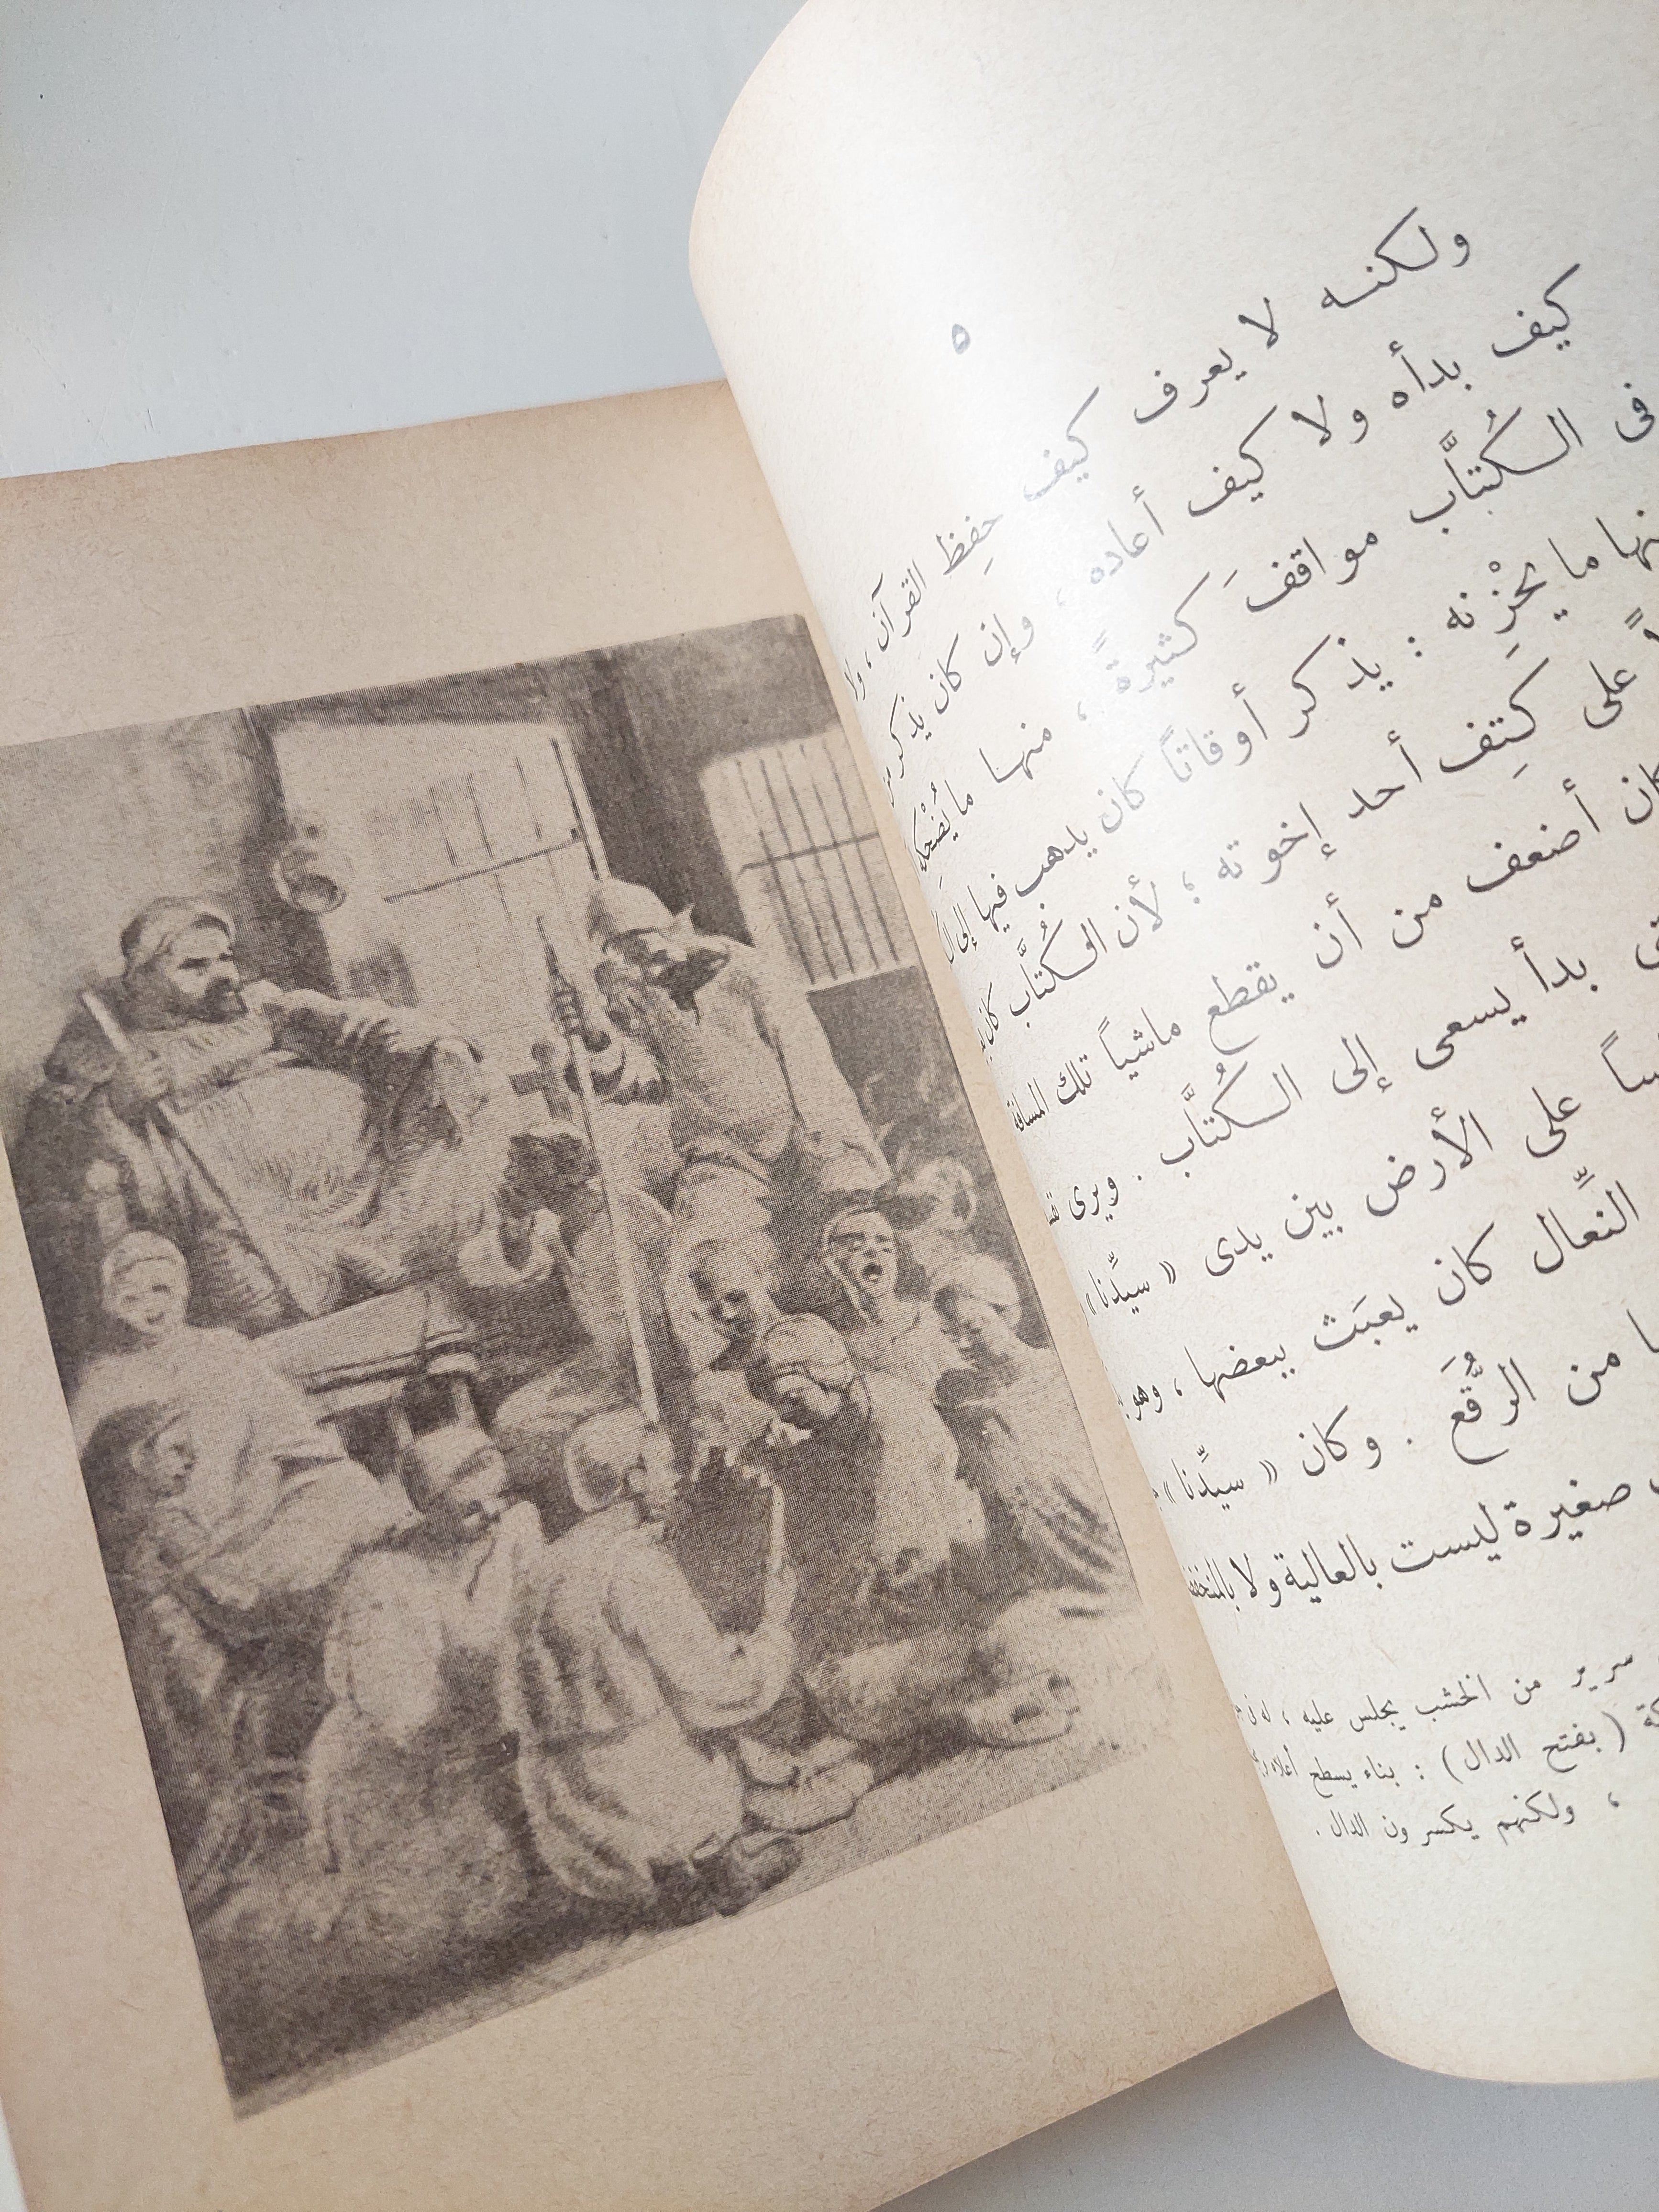 ٥
ولكنه لا يعرف كيف حفِظ القرآن ، ولا
كيف بدأه ولا كيف أعاده ، وإن كان يذكر من
فى الكُتَّاب مواقفَ كثيرةً ، منها ما يُضْحكه
ما يحْزِنه : يذكر أوقاتاً كان يذهب فيها إلى
على كَتِف أحد إخوته ؛ لأن الكُتَّاب كان
أضعف من أن يقطع ماشياً تلك المسافة
بدأ يسعى إلى الكُتَّاب . ويرى
على الأرض بين يدى « سيِّدنا »
النعال كان يعبَث ببعضها ، وهو
من الرُّقَع . وكان « سيِّدنا »
صغيرة ليست بالعالية ولا
سرير من الخشب يجلس عليه ،
( بفتح الدال ) : بناء يسطح أعلاه
، ولكنهم يكسرون الدال .